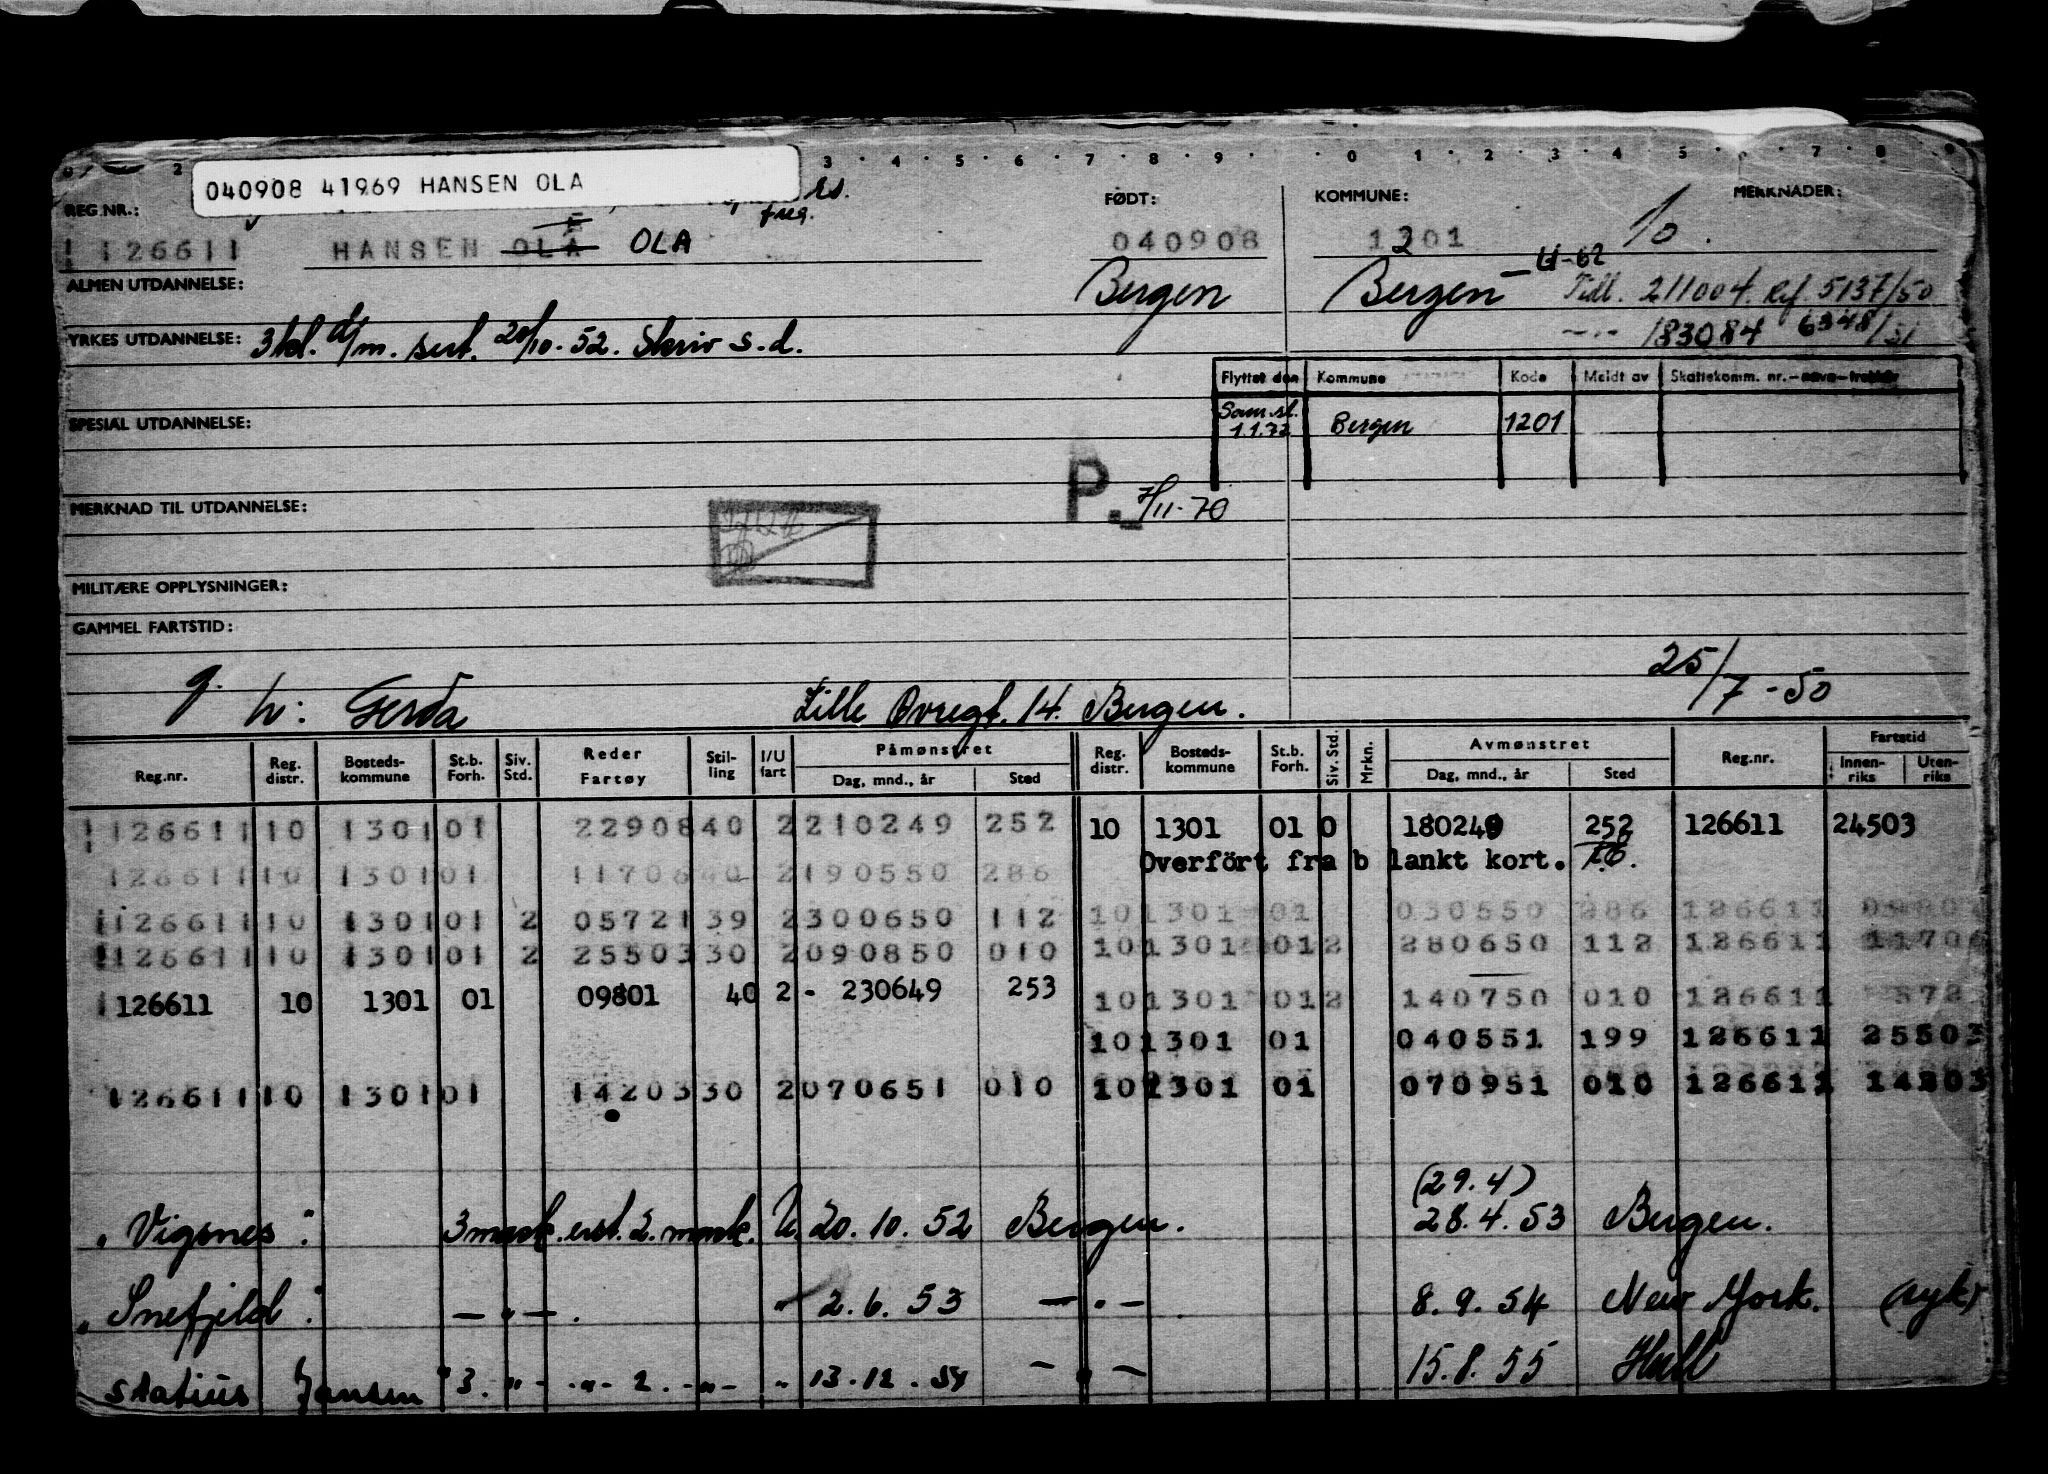 2 3 4 5 6 7 8 9 0 1 2 3 4 5 6 7 8 9
040908 41969 HANSEN OLA
REG.NR.: freg. FØDT: KOMMUNE: MERKNADER:
126611 HANSEN OLA OLA 040908 1201
ALMEN UTDANNELSE: Bergen Bergen U-62 Tidl. 211004. Ref. 5137/50
YRKES UTDANNELSE: 3kl. m. sert. 20/10-52. Skriv s.d. 183084 6348/51
Flyttet den Kommune Kode Meldt av Skattekomm. nr.
SPESIAL UTDANNELSE: Sam.sl. 1.1.72 Bergen 1201
P. 7/11-70
MERKNAD TIL UTDANNELSE:
MILITÆRE OPPLYSNINGER:
GAMMEL FARTSTID:
25/7-50
g. h: Gerda Lille Øvregt. 14. Bergen.
Reg.nr. Reg. distr. Bosteds-kommune St.b. Forh. Siv. Std. Reder Fartøy Stil-ling I/U fart Påmønstret Dag, mnd., år Sted Reg. distr. Bosteds-kommune St.b. Forh. Siv. Std. Mrkn. Avmønstret Dag, mnd., år Sted Reg.nr. Fartstid Innen-riks Uten-riks
126611 10 1301 01 22908 40 2 210249 252 10 1301 01 0 180249 252 126611 24503
Overført fra b lankt kort.
126611 10 1301 01 11706 40 2 190550 286
126611 10 1301 01 2 05721 39 2 300650 112 10 1301 01 030550 286 126611
126611 10 1301 01 2 25503 30 2 090850 010 10 1301 01 2 280650 112 126611 11706
126611 10 1301 01 09801 40 2 - 230649 253 10 1301 01 2 140750 010 126611
10 1301 01 040551 199 126611 25503
126611 10 1301 01 14203 30 2 070651 010 10 1301 01 070951 010 126611 14203
(29.4)
"Vigsnes". 3 mask. erst. 2. mask. U. 20.10.52 Bergen. 28.4.53 Bergen.
"Snefjeld". — " — . " 2.6.53 — " — 8.9.54 New York. (syk)
Statius Jansen" 3. " - - " - 2. - " - " 13.12.54 — " — 15.8.55 Hull